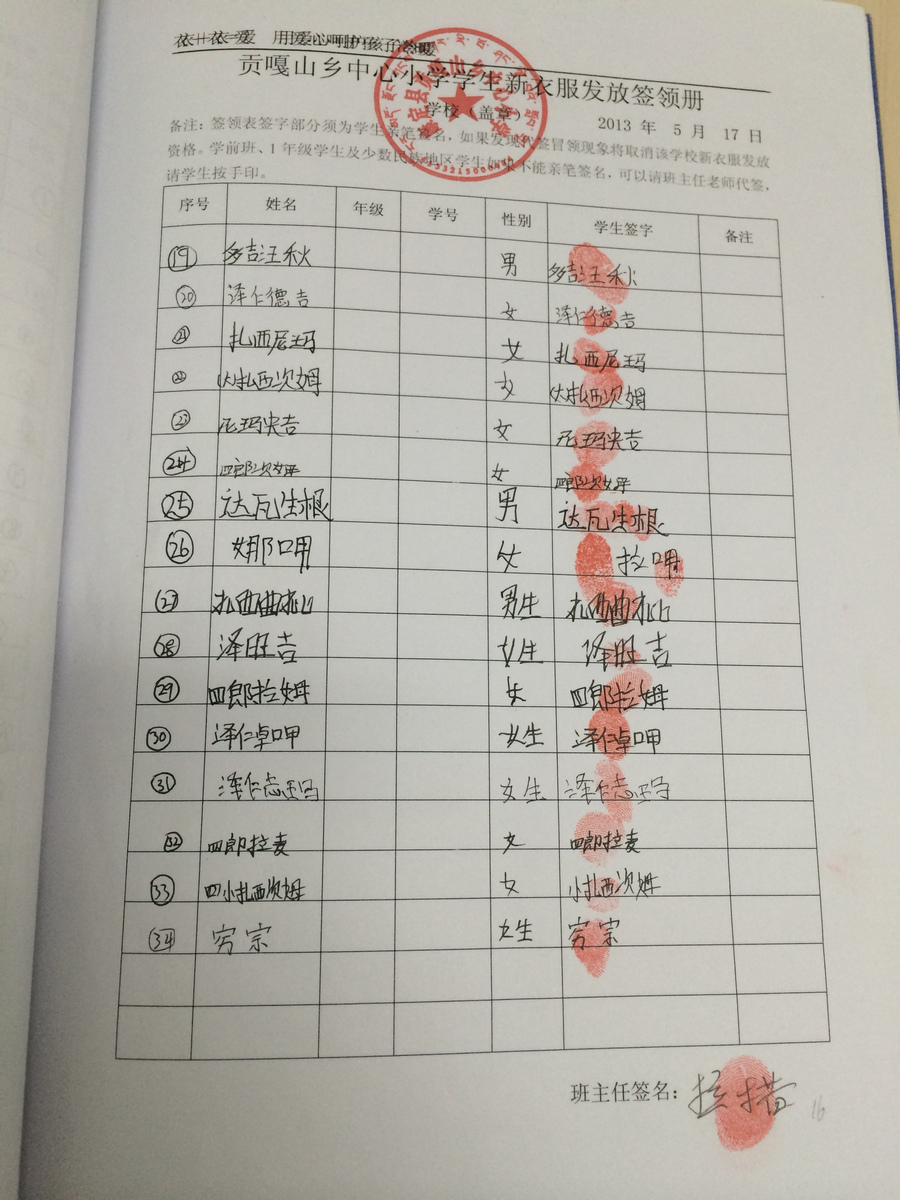 衣+衣=爱 用爱心呵护孩子冷暖
贡嘎山乡中心小学学生新衣服发放签领册
学校（盖章）
2013 年 5 月 17 日
备注：签领表签字部分须为学生亲笔签名，如果发现代签冒领现象将取消该学校新衣服发放
资格。学前班、1年级学生及少数民族地区学生如果不能亲笔签名，可以请班主任老师代签，
请学生按手印。
序号 姓名 年级 学号 性别 学生签字 备注
⑲ 多彭汪秋 男 多彭汪秋
⑳ 泽仁德吉 女 泽仁德吉
㉑ 扎西尼玛 女 扎西尼玛
㉒ 大扎西次姆 女 大扎西次姆
㉓ 尼玛央吉 女 尼玛央吉
㉔ 四郎次姆 女 四郎次姆
㉕ 达瓦生根 男 达瓦生根
㉖ 女 拉呷
㉗ 扎西曲 男生 扎西曲
㉘ 泽旺吉 女生 泽旺吉
㉙ 四郎拉姆 女 四郎拉姆
㉚ 泽仁卓呷 女生 泽仁卓呷
㉛ 泽仁志玛 女生 泽仁志玛
㉜ 四郎拉麦 女 四郎拉麦
㉝ 小扎西次姆 女 小扎西次姆
㉞ 穷宗 女生 穷宗
班主任签名：拉措
16